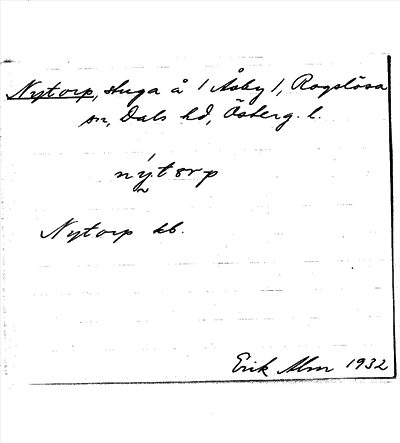 Nytorp, stuga å / Åsby /, Rogslösa
sn, Dals hd, Österg. l.
nýtorp
Nytorp kb.
Erik Alm 1932